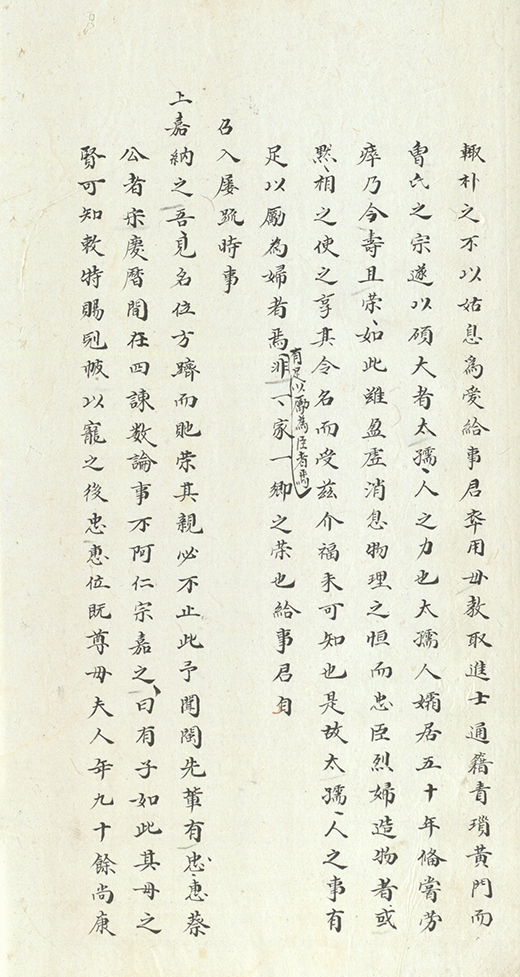 輙朴之不以姑息為愛給事君卒用母教取進士通籍青瑣黃門而
曾氏之宗遂以碩大者太孺人之力也太孺人孀居五十年俻嘗勞
瘁乃今壽且荣如此雖盈虛消息物理之恒而忠臣烈婦造物者或
黙相之使之享其令名而受茲介福未可知也是故太孺人之事有
足以勵為婦者焉有足以勵為臣者焉非一家一鄉之荣也給事君自
召入屡䟽時事
上嘉納之吾見名位方躋而貤荣其親必不止此予聞閩先輩有忠惠蔡
公者宋慶曆間在四諫数論事不阿仁宗嘉之曰有子如此其母之
賢可知敕特賜冠帔以寵之後忠惠位既尊母夫人年九十餘尚康